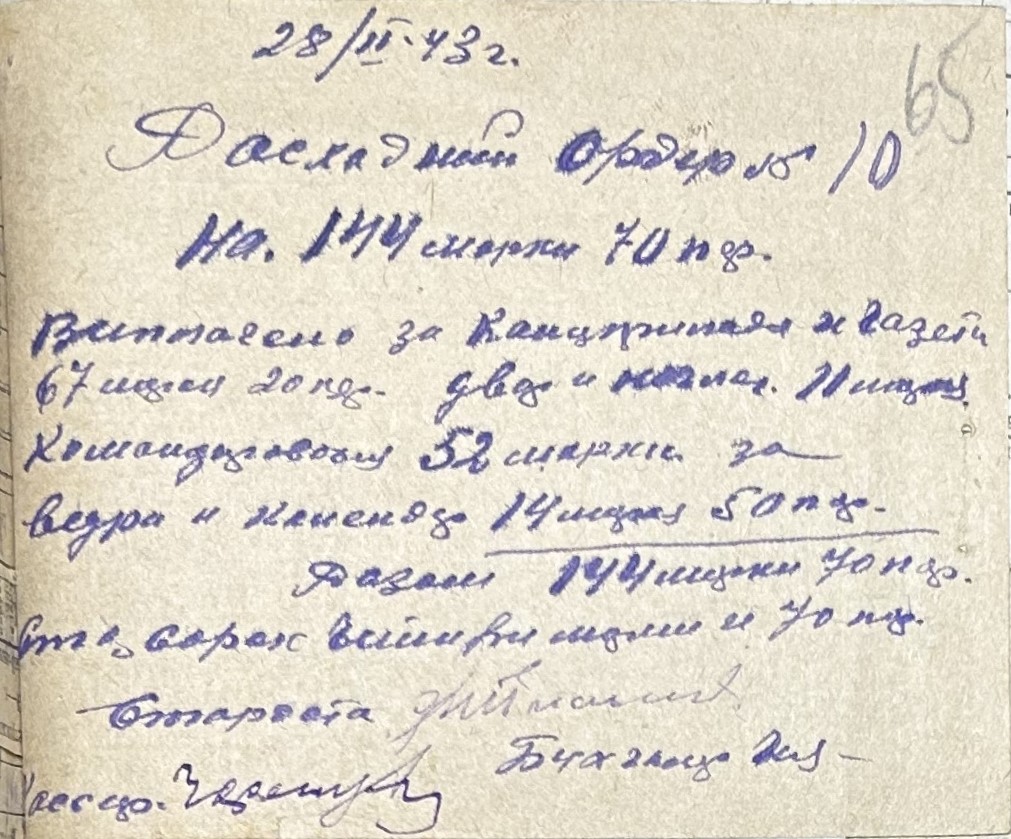 28/II.43 г.
65
Расхадний ордер № 10
На. 144 марки 70 пф.
Виплачено за Канц и газети
67 марки 20 пф. 11 марки
Командировочн 52 марки за
ведра и 14 марки 50 пф.
Разом 144 марки 70 пф.
Сто сорок чотири марки и 70 пф.
Староста
Бухгалтер
Кассир.